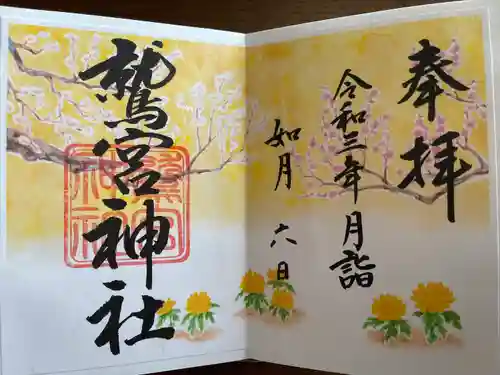 奉拝
令和三年月詣
如月 六日
鷲宮神社